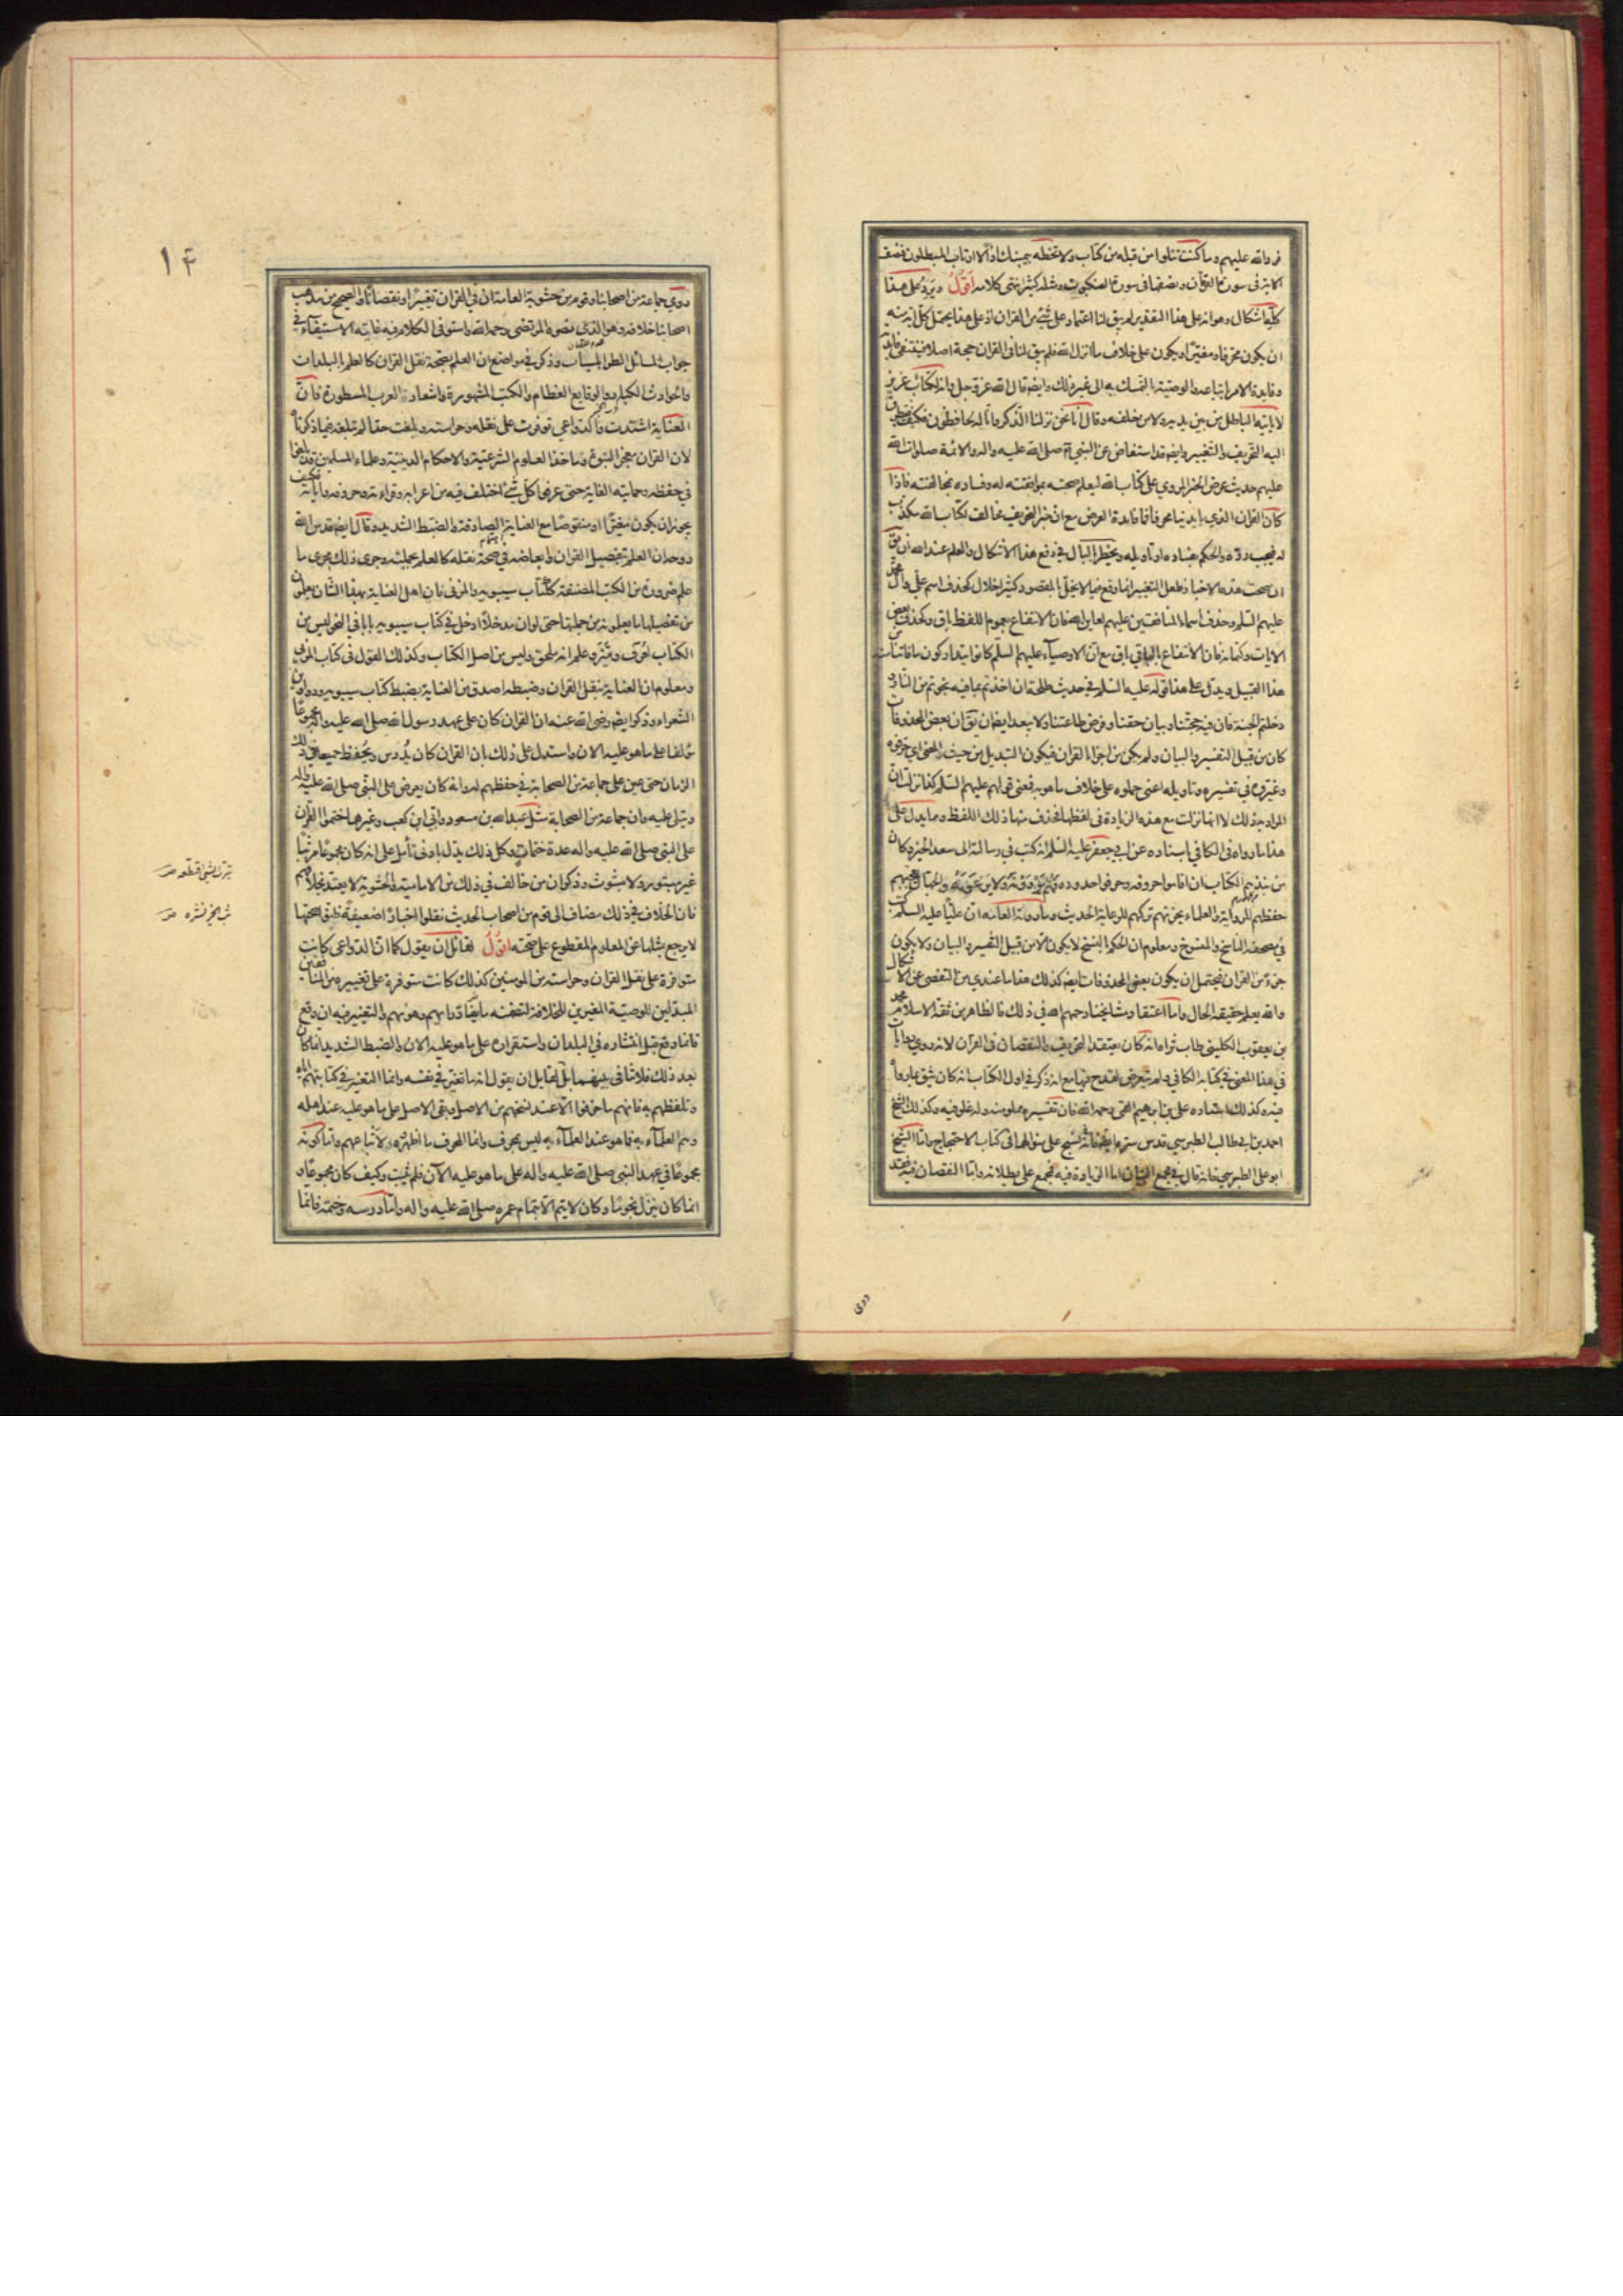 فرد الله عليهم وما كنت تتلوا من قبله من كتاب ولا تخطه بيمينك اذا لارتاب المبطلون فنصف
الاية في سورة الفرقان ونصفها في سورة العنكبوت ومثله كثير انتهى كلامه اقول ويرد على هذا
كله اشكال وهو انه على هذا التقدير لم يبق لنا اعتماد على شئ من القران اذ على هذا يحتمل كل اية منه
ان يكون محرفا ومغيرا ويكون على خلاف ما انزل الله فلم يبق لنا في القران حجة اصلا فينتفي فايدته
وفايدة الامر باتباعه والوصية بالتمسك به الى غير ذلك وايضا قال الله عز وجل وانه لكتاب عزيز
لا ياتيه الباطل من بين يديه ولا من خلفه وقال انا نحن نزلنا الذكر وانا له لحافظون فكيف يتطرق
اليه التحريف والتغيير وايضا قد استفاض عن النبي صلى الله عليه واله والائمة صلوات الله
عليهم حديث عرض الخبر المروي على كتاب الله ليعلم صحته بموافقته له وفساده بمخالفته فاذا
كان القران الذي بايدينا محرفا فما فايدة العرض مع ان خبر التحريف مخالف لكتاب الله مكذب
له فيجب رده والحكم بفساده او تاويله ويخطر بالبال في دفع هذا الاشكال والعلم عند الله ان يق
ان صحت هذه الاخبار فلعل التغيير انما وقع فيما لا يخل بالمقصود كثير اخلال كحذف اسم علي وال محمد
عليهم السلم وحذف اسماء المنافقين عليهم لعاين الله فان الانتفاع بعموم اللفظ باق وكحذف بعض
الايات وكتمانه فان الانتفاع بالباقي باق مع ان الاوصياء عليهم السلم كانوا يتداركون ما فاتنا منه من
هذا القبيل ويدل على هذا قوله عليه السلم في حديث طلحة ان اخذتم بما فيه نجوتم من النار و
دخلتم الجنة فان فيه حجتنا وبيان حقنا وفرض طاعتنا ولا يبعد ايضا ان يق ان بعض المحذوفات
كان من قبيل التفسير والبيان ولم يكن من اجزاء القران فيكون التبديل من حيث المعنى اي حرفوه
وغيروه في تفسيره وتاويله اعني حملوه على خلاف ما هو به فمعنى قولهم عليهم السلم كذا نزلت ان
المراد به ذلك لا انها نزلت مع هذه الزيادة في لفظها فحذف منها ذلك اللفظ ومما يدل على
هذا ما رواه في الكافي باسناده عن ابي جعفر عليه السلم انه كتب في رسالته الى سعد الخير وكان
من نبذهم الكتاب ان اقاموا حروفه وحرفوا حدوده فهم يروونه ولا يرعونه والجهال يعجبهم
حفظهم للرواية والعلماء يحزنهم تركهم للرعاية الحديث وما روته العامه ان عليا عليه السلم كتب
في مصحفه الناسخ والمنسوخ ومعلوم ان الحكم بالنسخ لا يكون الا من قبيل التفسير والبيان ولا يكون
جزء من القران فيحتمل ان يكون بعض المحذوفات ايضا كذلك هذا ما عندي من التفصي عن الاشكال
والله يعلم حقيقة الحال واما اعتقاد مشايخنا رحمهم الله في ذلك فالظاهر من ثقة الاسلام محمد
بن يعقوب الكليني طاب ثراه انه كان يعتقد التحريف والنقصان في القران لانه روى روايات
في هذا المعنى في كتابه الكافي ولم يتعرض لقدح فيها مع انه ذكر في اول الكتاب انه كان يثق بما رواه
فيه وكذلك استاده علي بن ابرهيم القمي رحمه الله فان تفسيره مملو منه وله غلو فيه وكذلك الشيخ
احمد بن ابي طالب الطبرسي قدس سره ايضا فانه نسج على منوالهما في كتاب الاحتجاج واما الشيخ
ابو علي الطبرسي فانه قال في مجمع البيان اما الزيادة فيه فمجمع على بطلانه واما النقصان فيه فقد
روى
١٤
روى جماعة من اصحابنا وقوم من حشوية العامة ان في القران تغييرا ونقصانا والصحيح من مذهب
اصحابنا خلافه وهو الذي نصره المرتضى رحمه الله واستوفى الكلام فيه غاية الاستيفاء في
جواب المسائل الطرابلسيات وذكر في مواضع ان العلم بصحة نقل القران كالعلم بالبلدان
والحوادث الكبار والوقايع العظام والكتب المشهورة واشعار العرب المسطورة فان
العناية اشتدت والدواعي توفرت على نقله وحراسته وبلغت حدا لم تبلغه فيما ذكرناه
لان القران معجز النبوة وماخذ العلوم الشرعية والاحكام الدينية وعلماء المسلمين قد بلغوا
في حفظه وحمايته الغاية حتى عرفوا كل شئ اختلف فيه من اعرابه وقراءته وحروفه واياته فكيف
يجوز ان يكون مغيرا او منقوصا مع العناية الصادقة والضبط الشديد وقال ايضا قدس الله
روحه ان العلم بتفصيل القران وابعاضه في صحة نقله كالعلم بجملته وجرى ذلك مجرى ما
علم ضرورة من الكتب المصنفة ككتاب سيبويه والمزني فان اهل العناية بهذا الشان يعلمون
من تفصيلها ما يعلمونه من جملتها حتى لو ان مدخلا ادخل في كتاب سيبويه بابا في النحو ليس من
الكتاب لعرف وميز وعلم انه ملحق وليس من اصل الكتاب وكذلك القول في كتاب المزني
ومعلوم ان العناية بنقل القران وضبطه اصدق من العناية بضبط كتاب سيبويه ودواوين
الشعراء وذكر ايضا رضى الله عنه ان القران كان على عهد رسول الله صلى الله عليه واله مجموعا
مؤلفا على ما هو عليه الان واستدل على ذلك بان القران كان يدرس ويحفظ جميعه في ذلك
الزمان حتى عين على جماعة من الصحابة في حفظهم له وانه كان يعرض على النبي صلى الله عليه واله
ويتلى عليه وان جماعة من الصحابة مثل عبد الله بن مسعود وابي ابن كعب وغيرهما ختموا القران
على النبي صلى الله عليه واله عدة ختمات وكل ذلك يدل بادنى تأمل على انه كان مجموعا مرتبا
غير مبتور ولا مبثوث وذكر ان من خالف في ذلك من الامامية والحشوية لا يعتد بخلافهم
فان الخلاف في ذلك مضاف الى قوم من اصحاب الحديث نقلوا اخبارا ضعيفة ظنوا صحتها
لا يرجع بمثلها عن المعلوم المقطوع على صحته اقول لقائل ان يقول كما ان الدواعي كانت
متوافرة على نقل القران وحراسته من المومنين كذلك كانت متوفرة على تغييره من المنافقين
المبدلين للوصية المغيرين للخلافة لتضمنه ما يضاد رايهم وهواهم والتغيير فيه ان وقع
فانما وقع قبل انتشاره في البلدان واستقراره على ما هو عليه الان والضبط الشديد انما كان
بعد ذلك فلا تنافي بينهما بل لقايل ان يقول انه ما تغير في نفسه وانما التغير في كتابتهم اياه
وتلفظهم به فانهم ما حرفوا الا عند نسخهم من الاصل وبقي الاصل على ما هو عليه عند اهله
وهم العلماء به فما هو عند العلماء به ليس بمحرف وانما المحرف ما اظهروه لاتباعهم واما كونه
مجموعا في عهد النبي صلى الله عليه واله على ما هو عليه الآن فلم يثبت وكيف كان مجموعا و
انما كان ينزل نجوما وكان لا يتم الا بتمام عمره صلى الله عليه واله واما درسه وختمه فانما